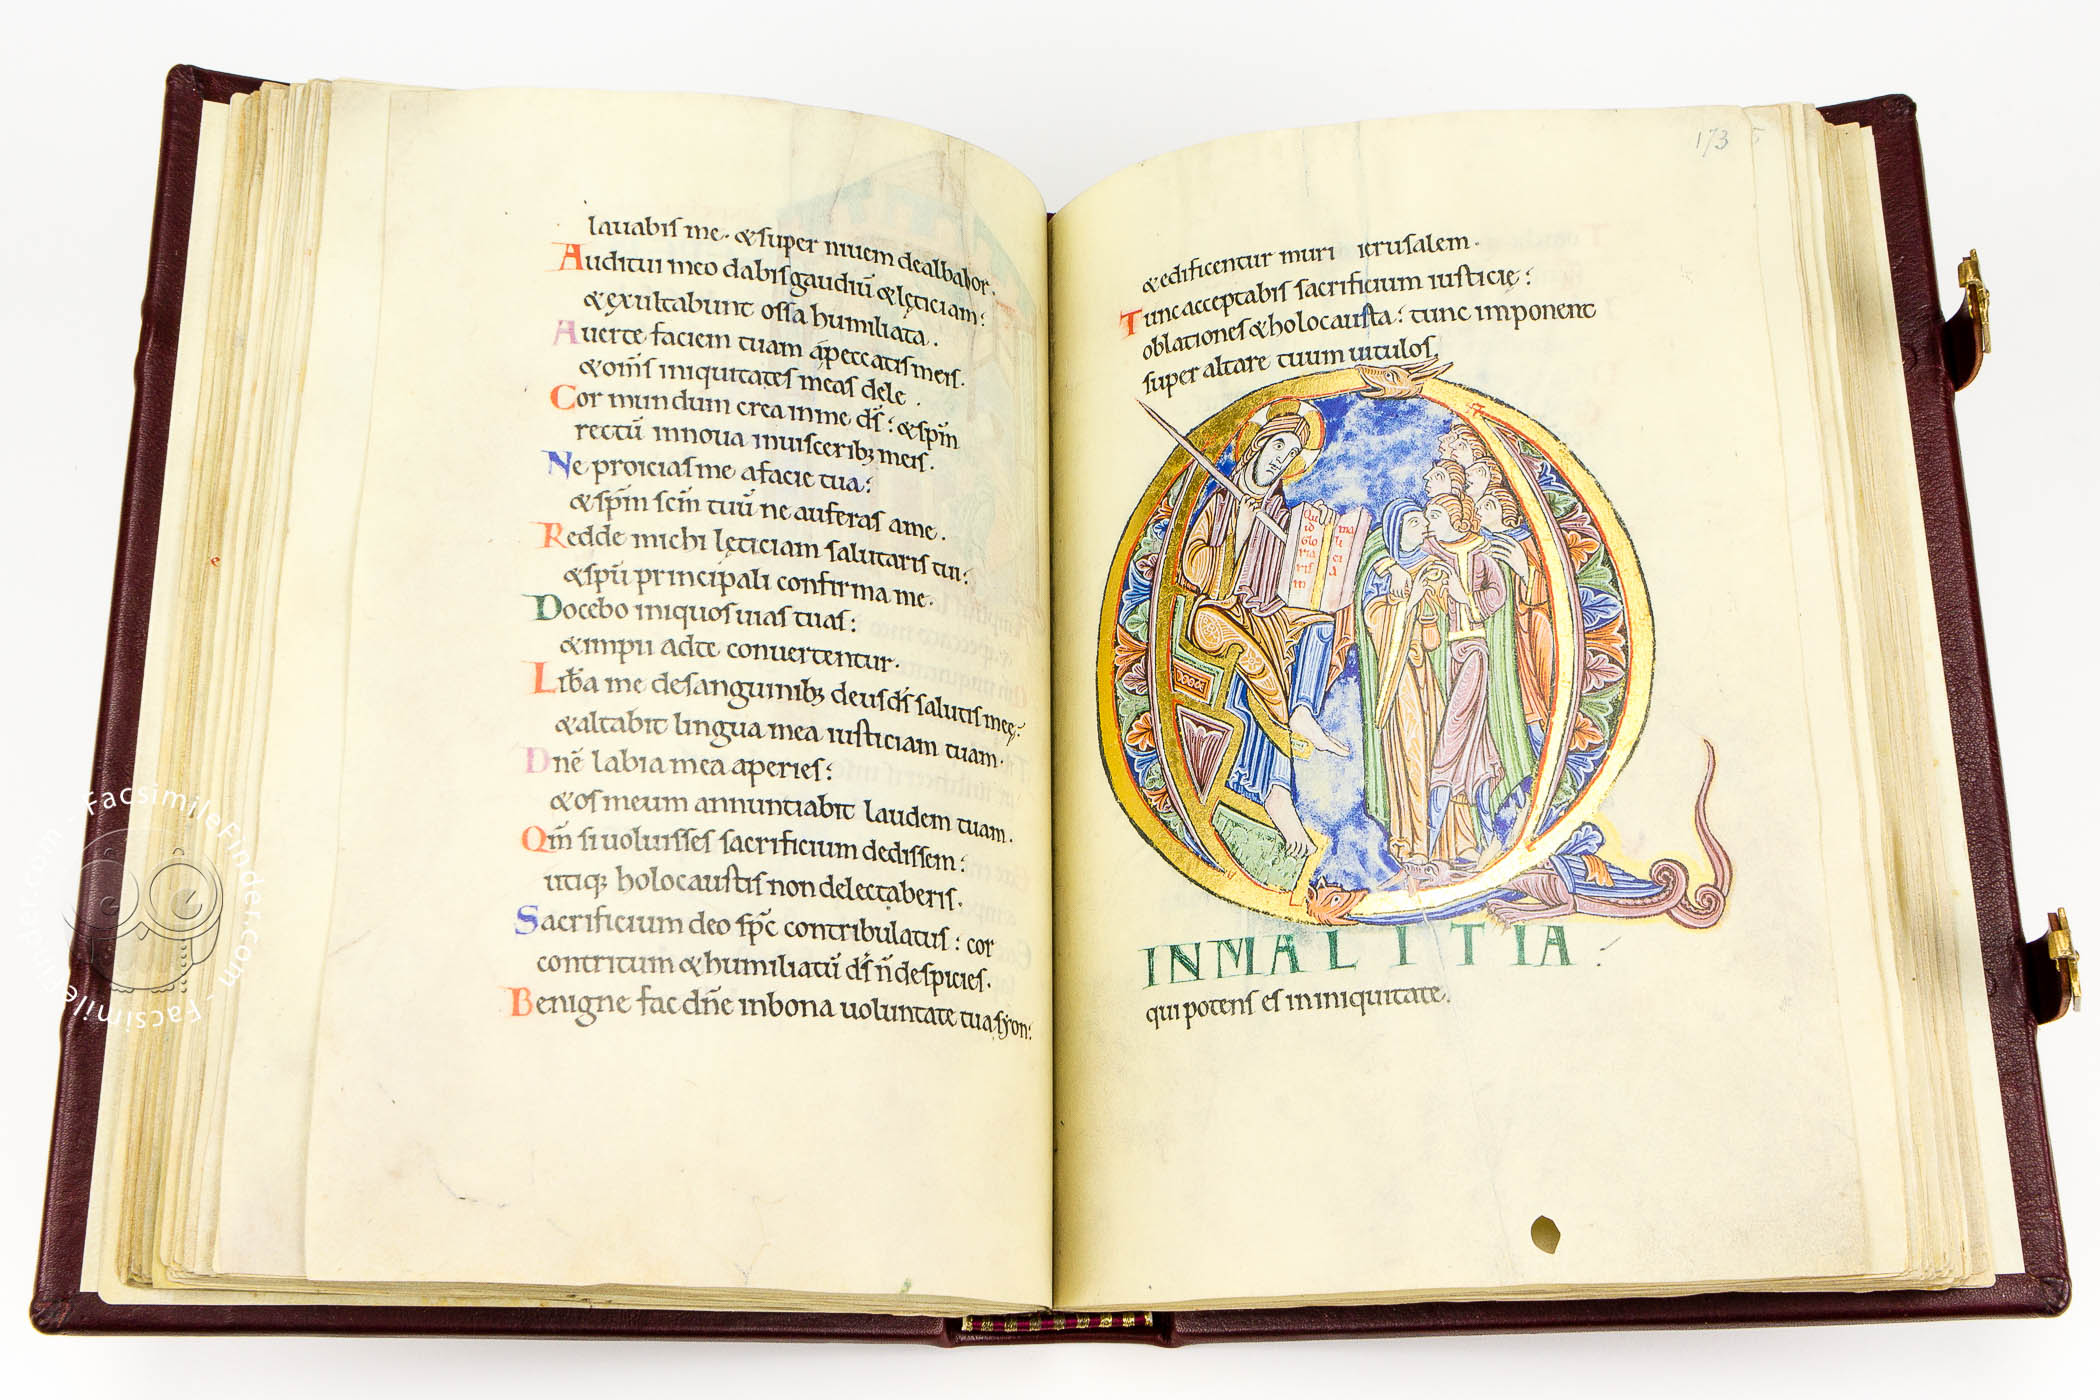 lauabis me. & super niuem dealbabor.
Auditui meo dabis gaudiū & lęticiam:
& exultabunt ossa humiliata.
Auerte faciem tuam a peccatis meis.
& om̄s iniquitates meas dele.
Cor mundum crea in me ds̄: & sp̄m
rectū innoua in uiscerib; meis.
Ne proicias me a facie tua:
& sp̄m scm̄ tuū ne auferas a me.
Redde michi lęticiam salutaris tui:
& sp̄u principali confirma me.
Docebo iniquos uias tuas:
& impii ad te conuertentur.
Lib̄a me de sanguinib; deus ds̄ salutis meę:
& altabit lingua mea iusticiam tuam.
Dnē labia mea aperies:
& os meum annuntiabit laudem tuam.
Qm̄ si uoluisses sacrificium dedissem:
utiq; holocaustis non delectaberis.
Sacrificium deo sp̄c contribulatus: cor
contritum & humiliatū ds̄ n̄ despicies.
Benigne fac dnē in bona uoluntate tua syon:
173
& edificentur muri ierusalem.
Tunc acceptabis sacrificium iusticię:
oblationes & holocausta: tunc imponent
super altare tuum uitulos.
Qu
id
Glo
ria
ris
in
ma
li
ci
a
INMALITIA:
qui potens es in iniquitate.
FacsimileFinder.com - FacsimileFinder.com -